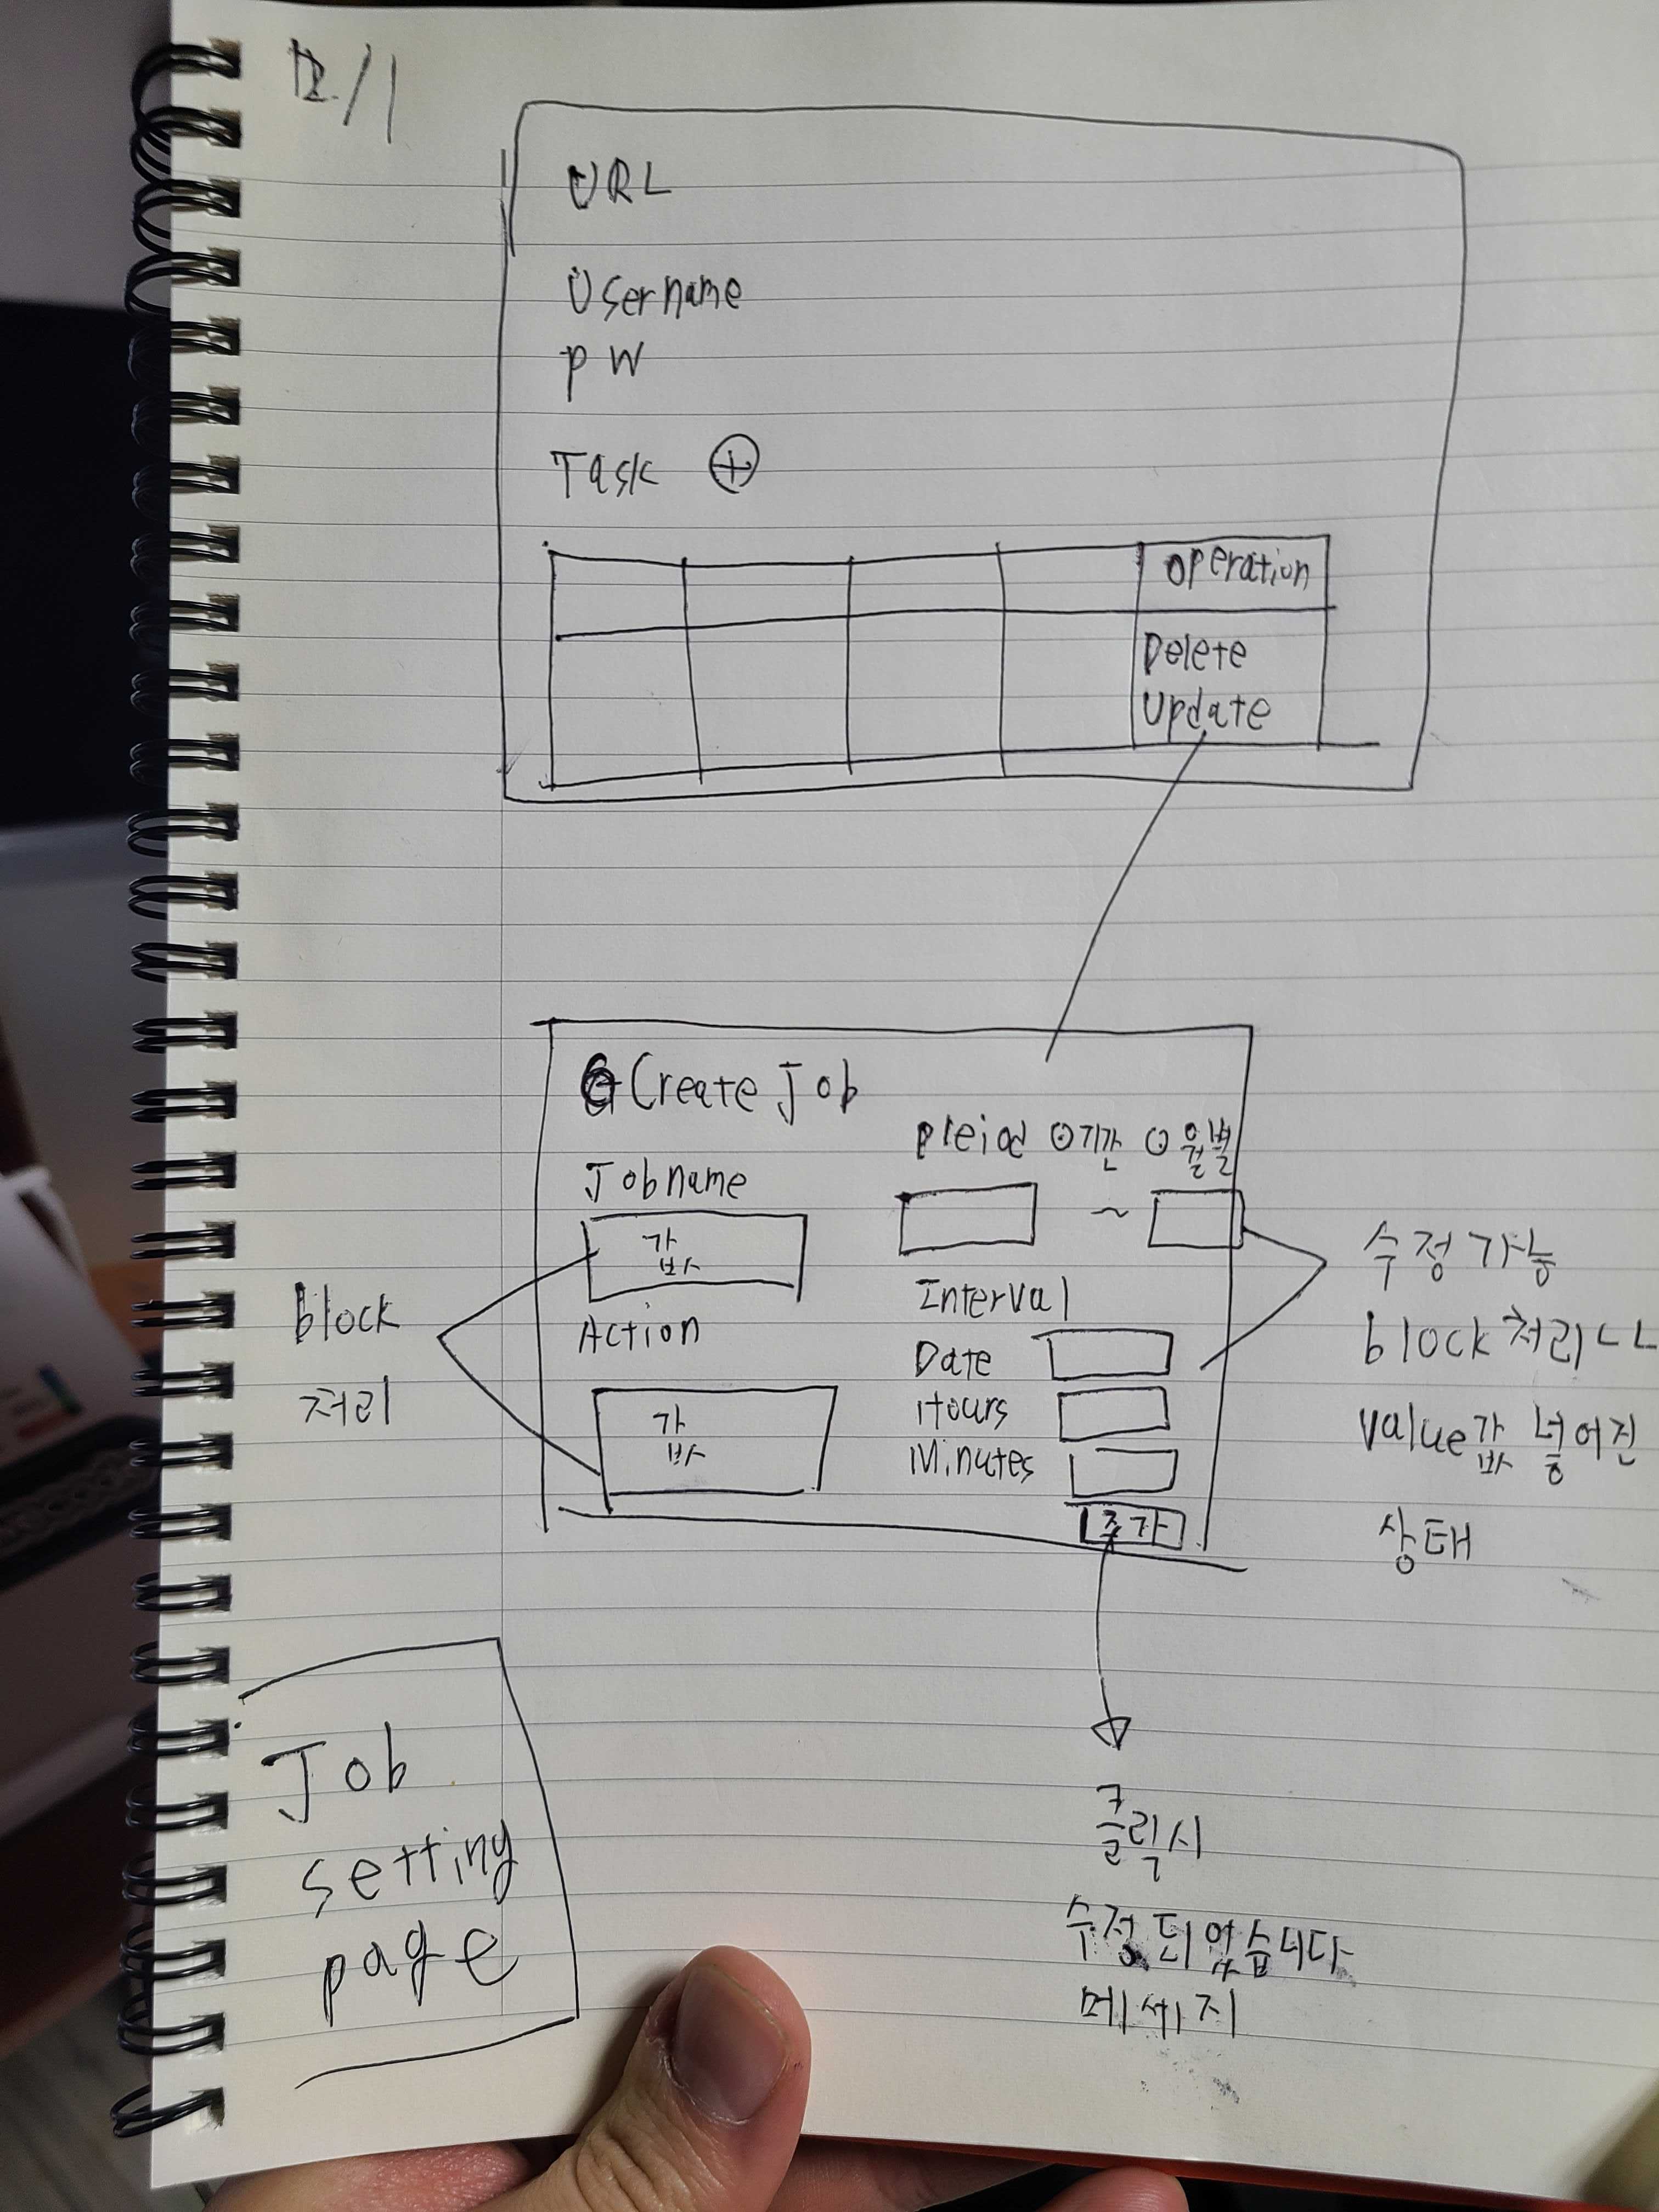 12/1
URL
Username
PW
Task ⊕
Operation
Delete
Update
Create Job
Preiod ⊙기간 ⊙월별
Jobname
~
값
수정가능
Interval
block
Action
Date
block처리ㄴㄴ
처리
Hours
값
Value값 넣어진
Minutes
추가
상태
Job
setting
page
클릭시
수정되었습니다
메세지